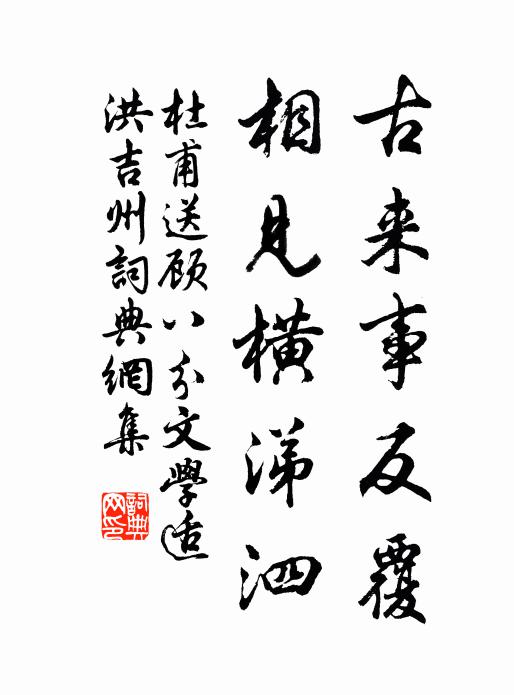 古来事反覆
相見橫涕泗
杜甫送顾八分文學适
洪吉州詞典網集
詞典網印